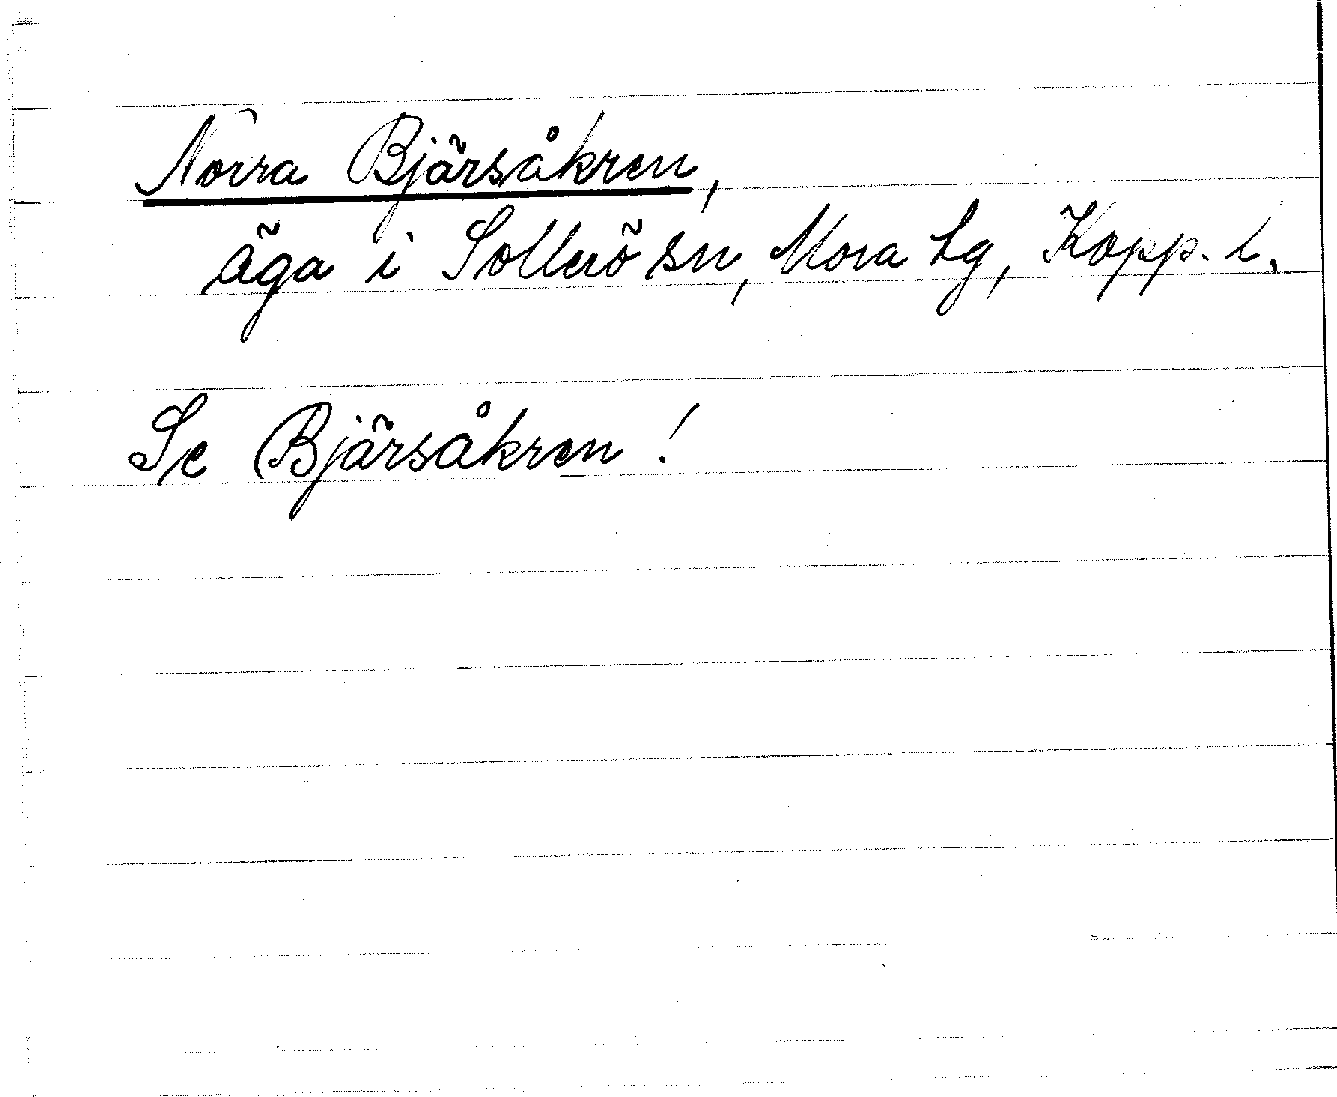 Norra Bjärsåkren,
äga i Sollerö sn, Mora tg, Kopp. l.
Se Bjärsåkren!